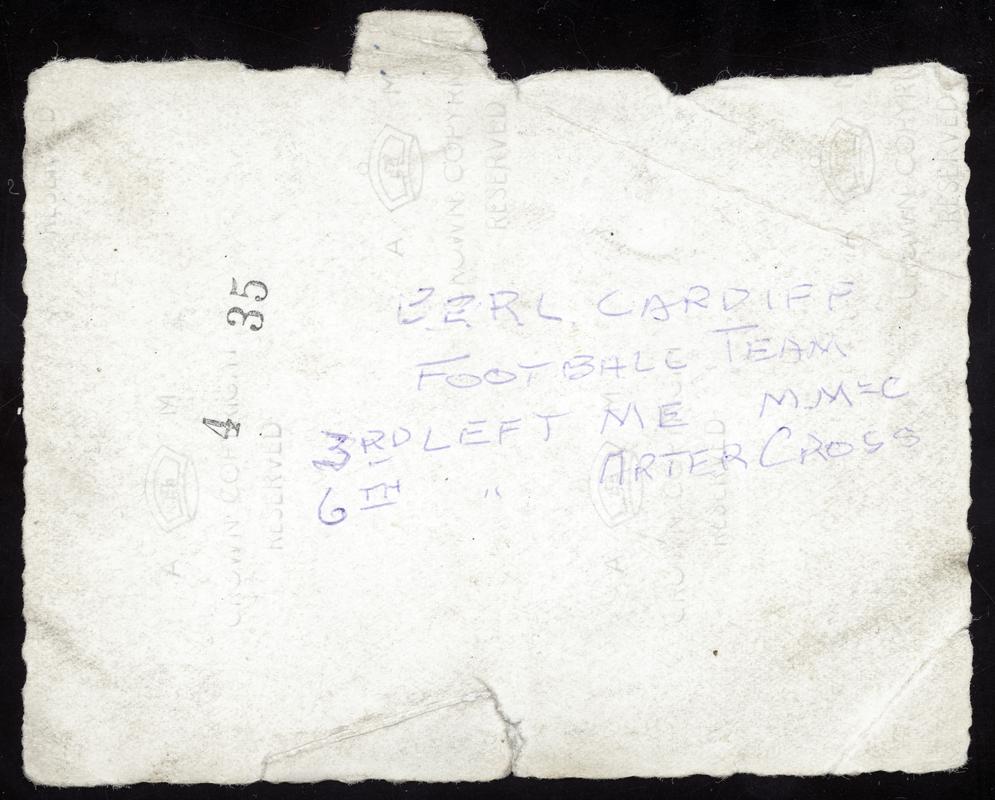 B.E.R.L. CARDIFF
FOOTBALL TEAM
3RD LEFT ME M.McC
6TH " ARTER CROSS
35
4
A M
CROWN COPYRIGHT
RESERVED
A M
CROWN COPYRIGHT
RESERVED
A M
CROWN COPYRIGHT
RESERVED
RESERVED
CROWN COPYRI
RESERVED